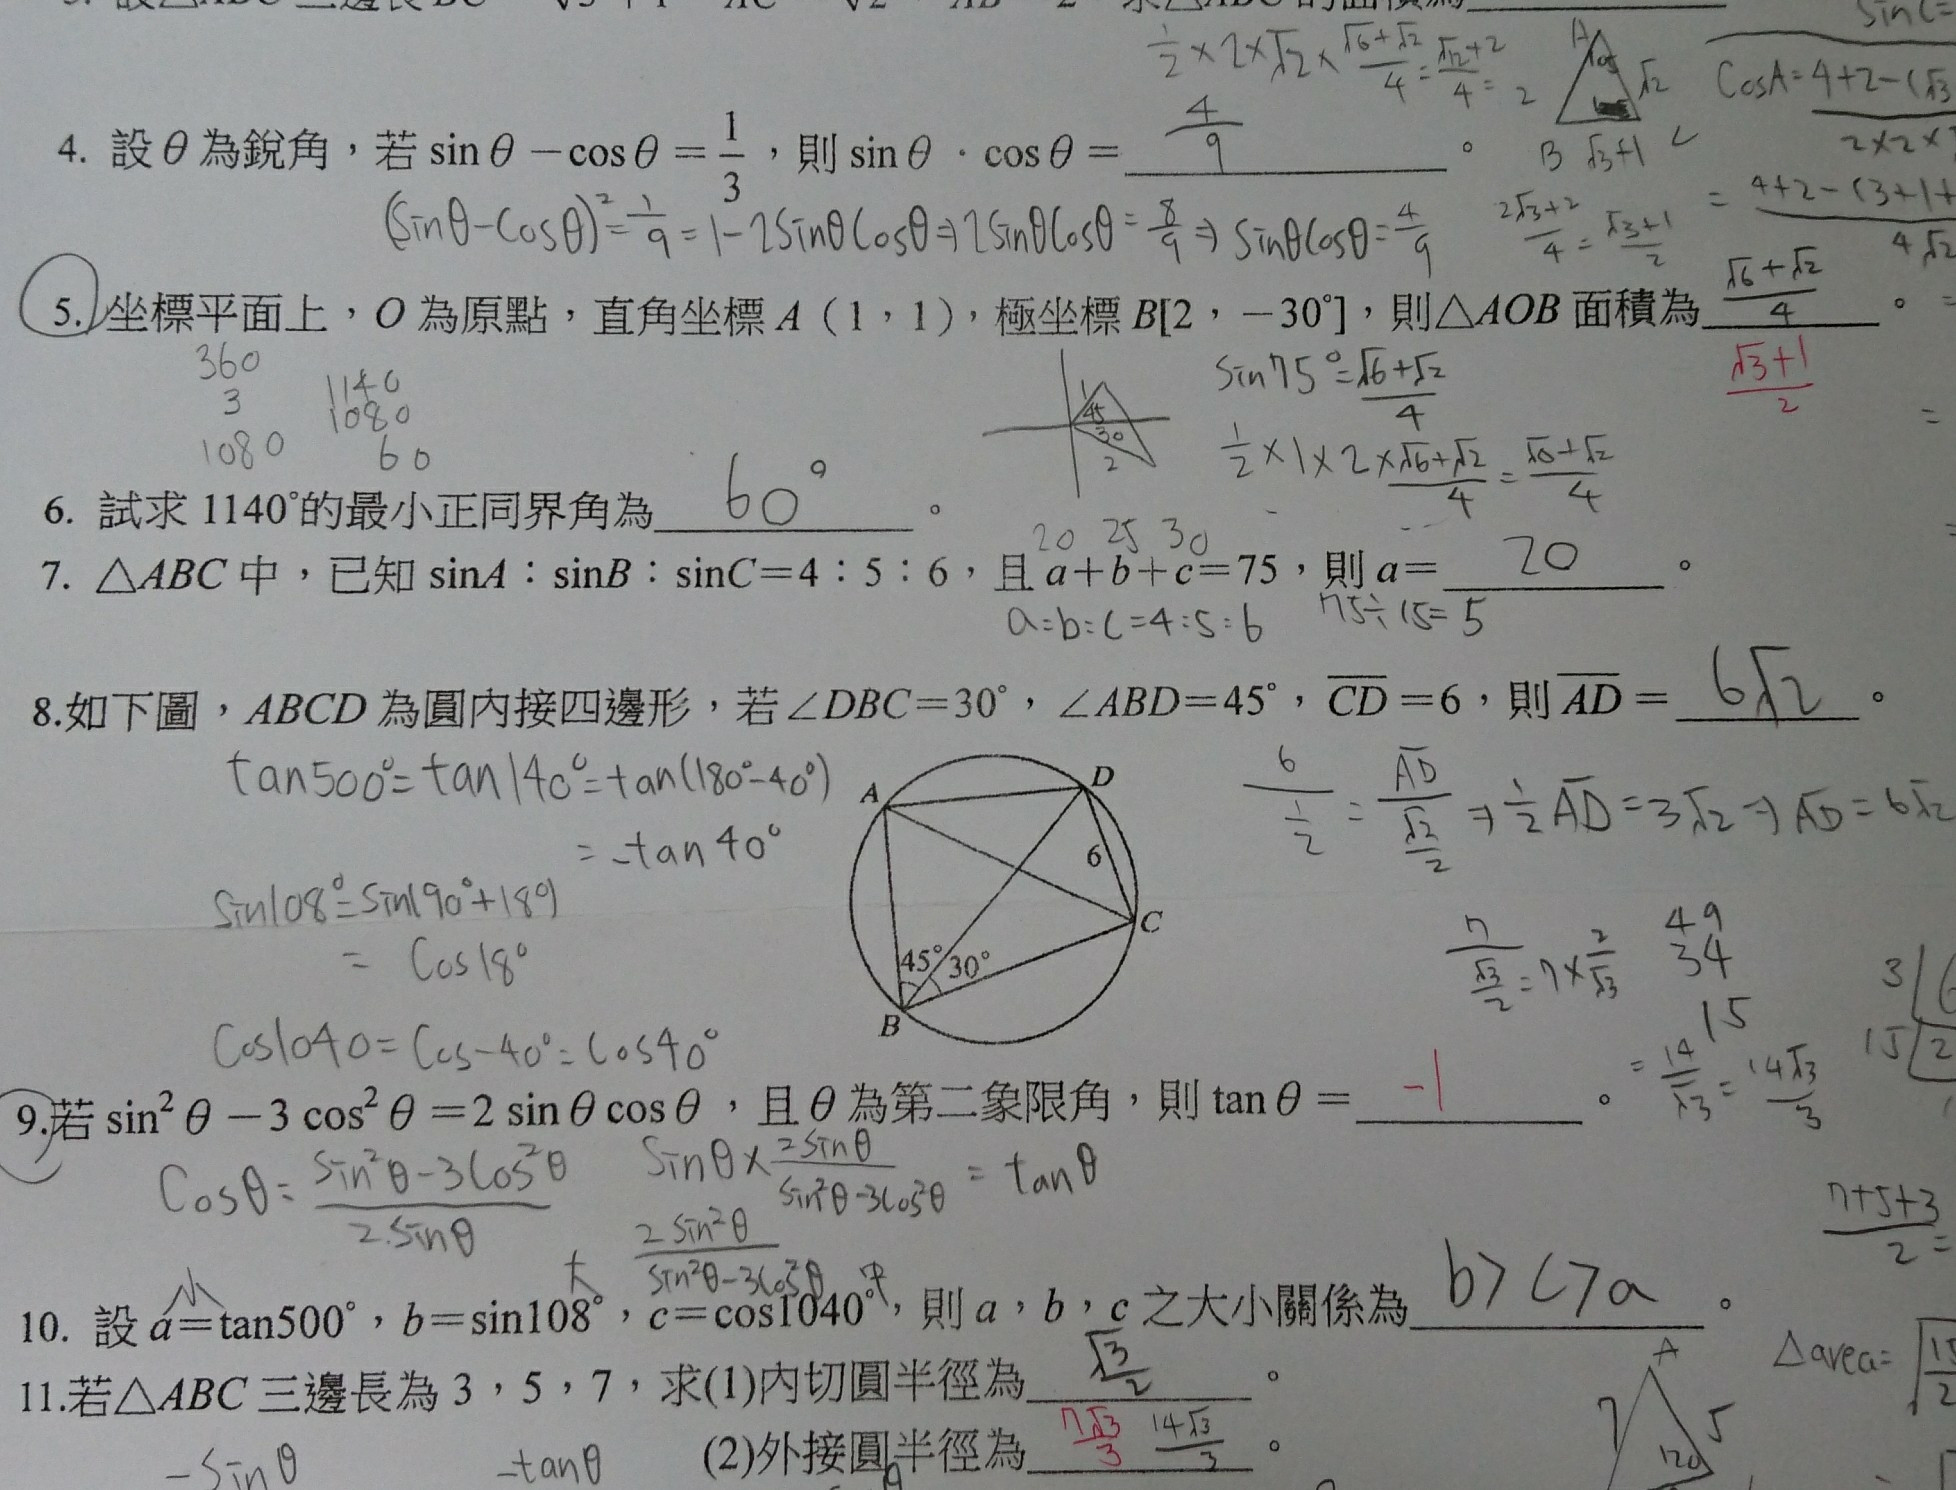 設△ABC 三邊長
½×2×√2×(√6+√2)/4=(√12+2)/4=
(2√3+2)/4=(√3+1)/2
A
√2
B √3+1
CosA=4+2-(√3
2×2×
=4+2-(3+1+
4√2
4. 設θ為銳角，若 sinθ－cosθ＝1/3，則 sinθ．cosθ＝4/9。
(sinθ-cosθ)²=1/9=1-2sinθcosθ⇒2sinθcosθ=8/9⇒sinθcosθ=4/9
5. 坐標平面上，O 為原點，直角坐標 A（1，1），極坐標 B[2，－30°]，則△AOB 面積為(√6+√2)/4。
(√3+1)/2
360
3
1080
1140
1080
60
1
45
30
2
sin75°=(√6+√2)/4
½×1×2×(√6+√2)/4=(√6+√2)/4
6. 試求 1140°的最小正同界角為60°。
20 25 30
7. △ABC 中，已知 sinA：sinB：sinC＝4：5：6，且 a＋b＋c＝75，則 a＝20。
a:b:c=4:5:6 75÷15=5
8.如下圖，ABCD 為圓內接四邊形，若∠DBC＝30°，∠ABD＝45°，CD＝6，則AD＝6√2。
tan500°=tan140°=tan(180°-40°)
=-tan40°
sin108°=sin(90°+18°)
=cos18°
cos1040=cos-40°=cos40°
A
D
6
C
45° 30°
B
6/(1/2)=AD/(√2/2)⇒½AD=3√2⇒AD=6√2
7/(√3/2)=7×2/√3
=14/√3=14√3/3
49
34
15
9.若 sin²θ－3cos²θ＝2sinθcosθ，且θ為第二象限角，則 tanθ＝-1。
cosθ=(sin²θ-3cos²θ)/(2sinθ)
sinθ×2sinθ/(sin²θ-3cos²θ)=tanθ
2sin²θ/(sin²θ-3cos²θ)
(7+5+3)/2=
小 大 中
10. 設 a＝tan500°，b＝sin108°，c＝cos1040°，則 a，b，c 之大小關係為b>c>a。
11.若△ABC 三邊長為 3，5，7，求(1)內切圓半徑為√3/2。
(2)外接圓半徑為7√3/3 14√3/3。
△area=
A
7
5
120
-sinθ
-tanθ